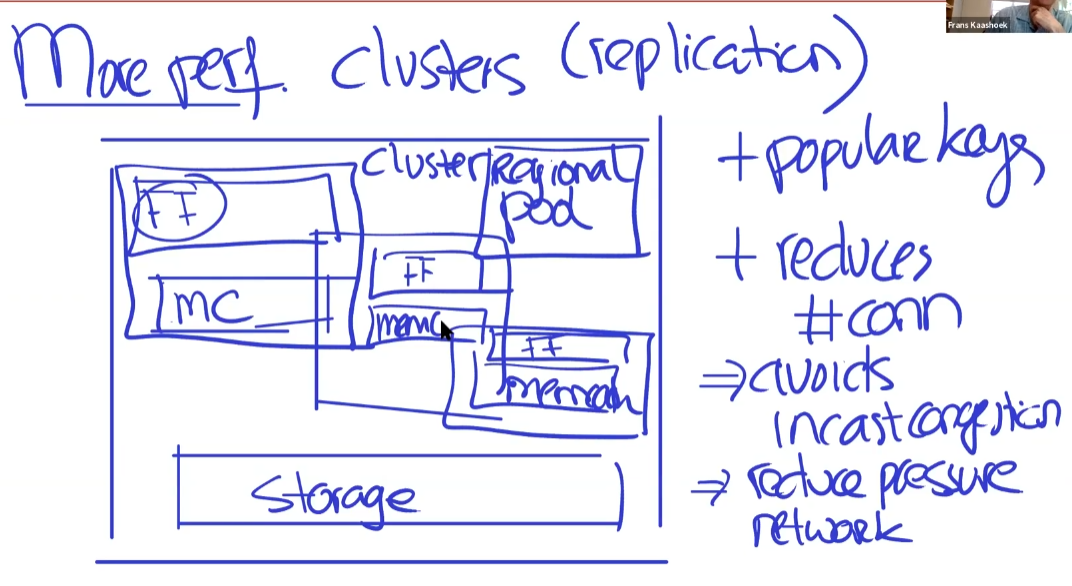 Frans Kaashoek
More perf. clusters (replication)
cluster Regional
pod
FE
MC
FE
memc
FE
memcach
Storage
+ popular keys
+ reduces
#conn
⇒ avoids
incast congestion
⇒ reduce pressure
network